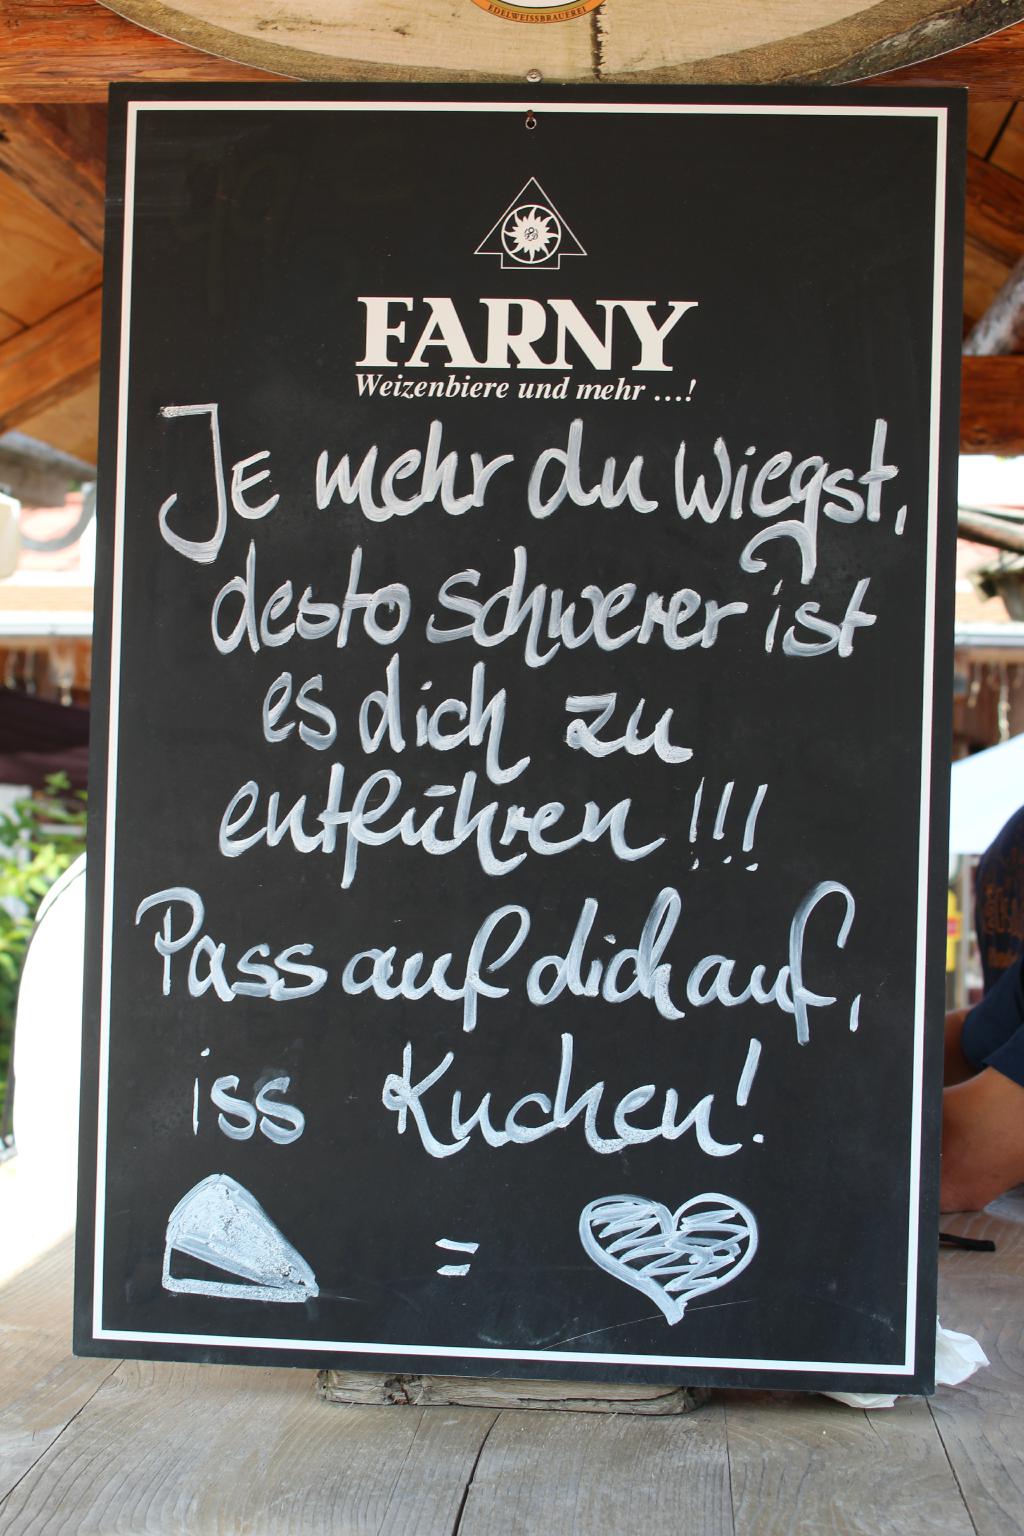 EDELWEISSBRAUEREI
FARNY
Weizenbiere und mehr ...!
Je mehr du wiegst,
desto schwerer ist
es dich zu
entführen!!!
Pass auf dich auf,
iss Kuchen!
=